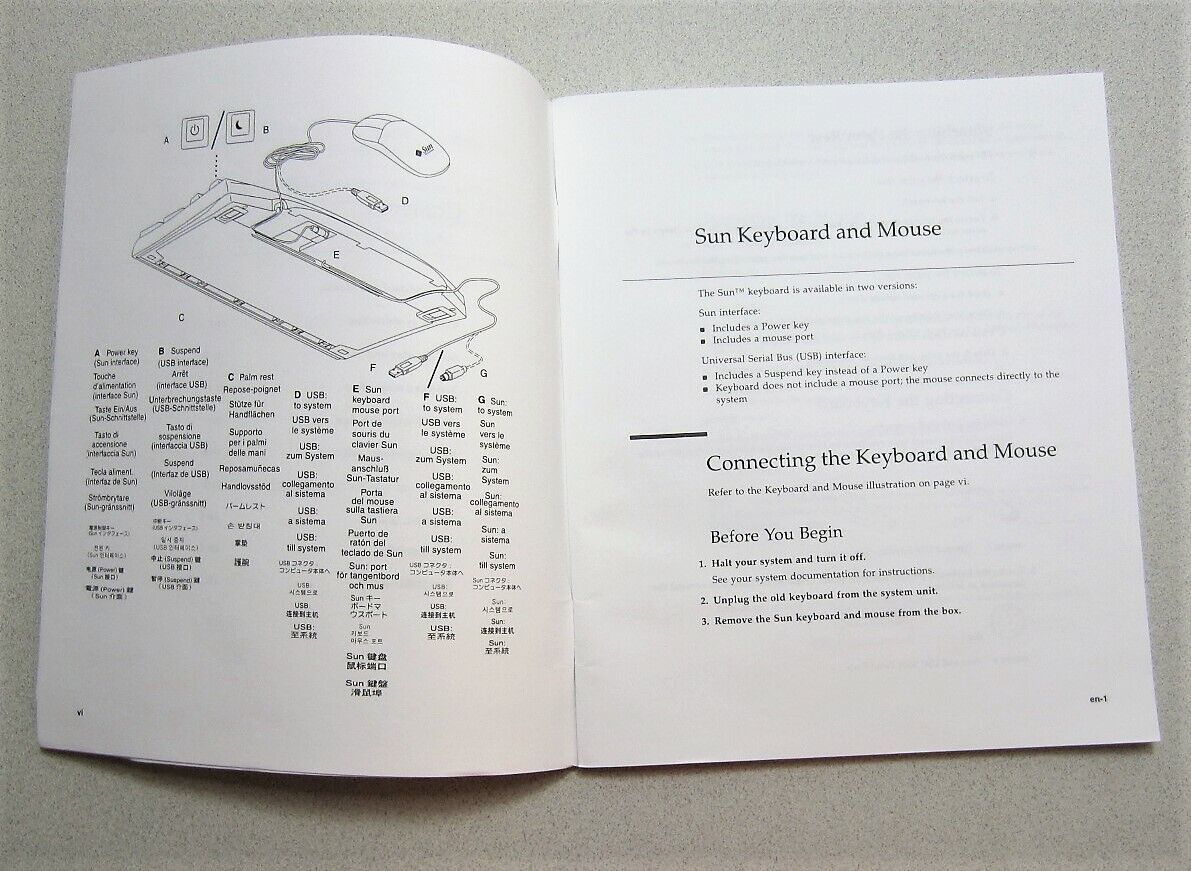 A
B
Sun
D
E
C
F
G
A Power key
(Sun interface)
Touche
d'alimentation
(interface Sun)
Taste Ein/Aus
(Sun-Schnittstelle)
Tasto di
accensione
(interfaccia Sun)
Tecla aliment.
(Interfaz de Sun)
Strömbrytare
(Sun-gränssnitt)
電源制御キー
(Sun インタフェース)
전원 키
(Sun 인터페이스)
电源 (Power) 键
(Sun 接口)
電源 (Power) 鍵
(Sun 介面)
B Suspend
(USB interface)
Arrêt
(interface USB)
Unterbrechungstaste
(USB-Schnittstelle)
Tasto di
sospensione
(interfaccia USB)
Suspend
(Interfaz de USB)
Viloläge
(USB-gränssnitt)
中断キー
(USB インタフェース)
일시 중지
(USB 인터페이스)
中止 (Suspend) 键
(USB 接口)
暫停 (Suspend) 鍵
(USB 介面)
C Palm rest
Repose-poignet
Stütze für
Handflächen
Supporto
per i palmi
delle mani
Reposamuñecas
Handlovsstöd
パームレスト
손 받침대
掌垫
護腕
D USB:
to system
USB vers
le système
USB:
zum System
USB:
collegamento
al sistema
USB:
a sistema
USB:
till system
USB コネクタ:
コンピュータ本体へ
USB:
시스템으로
USB:
连接到主机
USB:
至系統
E Sun
keyboard
mouse port
Port de
souris du
clavier Sun
Maus-
anschluß
Sun-Tastatur
Porta
del mouse
sulla tastiera
Sun
Puerto de
ratón del
teclado de Sun
Sun: port
för tangentbord
och mus
Sun キー
ボードマ
ウスポート
Sun
키보드
마우스 포트
Sun 键盘
鼠标端口
Sun 鍵盤
滑鼠埠
F USB:
to system
USB vers
le système
USB:
zum System
USB:
collegamento
al sistema
USB:
a sistema
USB:
till system
USB コネクタ:
コンピュータ本体へ
USB:
시스템으로
USB:
连接到主机
USB:
至系統
G Sun:
to system
Sun
vers le
système
Sun:
zum
System
Sun:
collegamento
al sistema
Sun: a
sistema
Sun:
till system
Sun コネクタ:
コンピュータ本体へ
Sun:
시스템으로
Sun:
连接到主机
Sun:
至系統
vi
Sun Keyboard and Mouse
The Sun™ keyboard is available in two versions:
Sun interface:
■ Includes a Power key
■ Includes a mouse port
Universal Serial Bus (USB) interface:
■ Includes a Suspend key instead of a Power key
■ Keyboard does not include a mouse port; the mouse connects directly to the
system
Connecting the Keyboard and Mouse
Refer to the Keyboard and Mouse illustration on page vi.
Before You Begin
1. Halt your system and turn it off.
See your system documentation for instructions.
2. Unplug the old keyboard from the system unit.
3. Remove the Sun keyboard and mouse from the box.
en-1